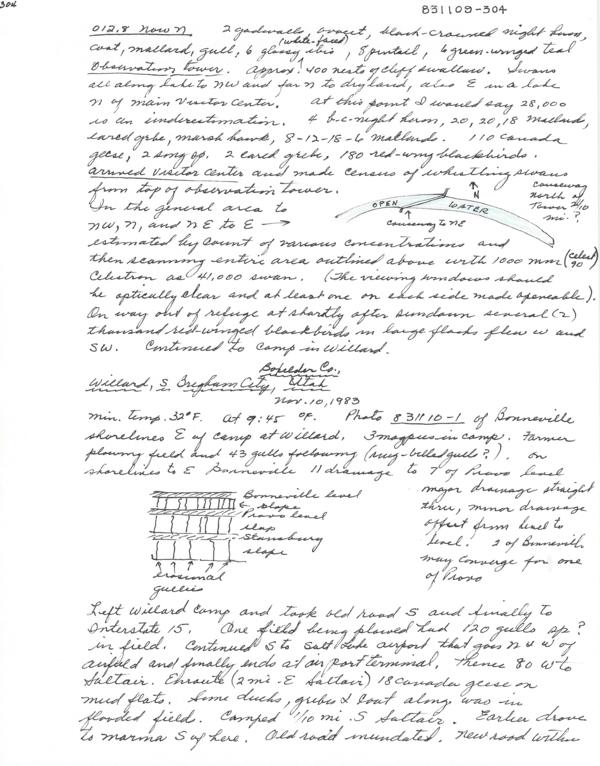 304
831109-304
012.8 now N. 2 gadwalls, avocet, black-crowned night heron,
(white-faced)
coot, mallard, gull, 6 glossy ibis, 8 pintail, 6 green-winged teal
Observation tower. Approx. 400 nests of cliff swallow. Swans
all along lake to NW and far N to dryland, also E in a lake
N of main Visitor Center. At this point I would say 28,000
is an underestimation. 4 b-c-night heron, 20, 20, 18 mallards,
eared grebe, marsh hawk, 8-12-18-6 mallards. 110 Canada
geese, 2 song sp. 2 eared grebe, 180 red-wing blackbirds.
arrived Visitor Center and made census of whistling swans
from top of observation tower.
In the general area to
NW, N, and NE to E →
OPEN
WATER
N
causeway to NE
causeway
North of
Tower 2/10
mi.?
estimated by count of various concentrations and
then scanning entire area outlined above with 1000 mm (Celest 90
Celestron as 41,000 swan. (The viewing windows should
be optically clear and at least one on each side made openable).
On way out of refuge at shortly after sundown several (2)
thousand red-winged blackbirds in large flocks flew W and
SW. Continued to camp in Willard.
Boxelder Co.,
Willard, S. Brigham City, Utah
Nov. 10, 1983
Min. temp. 32°F. At 9:45 °F. Photo 831110-1 of Bonneville
shorelines E of camp at Willard. 3 magpies in camp. Farmer
plowing field and 43 gulls following (ring-billed gulls?). On
shorelines to E Bonneville 11 drainage to 7 of Provo level
Bonneville level
& slope
Provo level
slope
Stansbury
slope
erosional
gullies
major drainage straight
thru, minor drainage
offset from level to
level. 2 of Bonneville
may converge for one
of Provo
Left Willard camp and took old road S and finally to
Interstate 15. One field being plowed had 120 gulls sp?
in field. Continued S to Salt Lake airport that goes N & W of
airfield and finally ends at airport terminal, thence 80 W to
Saltair. Enroute (2 mi. E Saltair) 18 Canada geese on
mud flats. Some ducks, grebes & coot along was in
flooded field. Camped 1/10 mi. S Saltair. Earlier drove
to marina S of here. Old road inundated. New road within